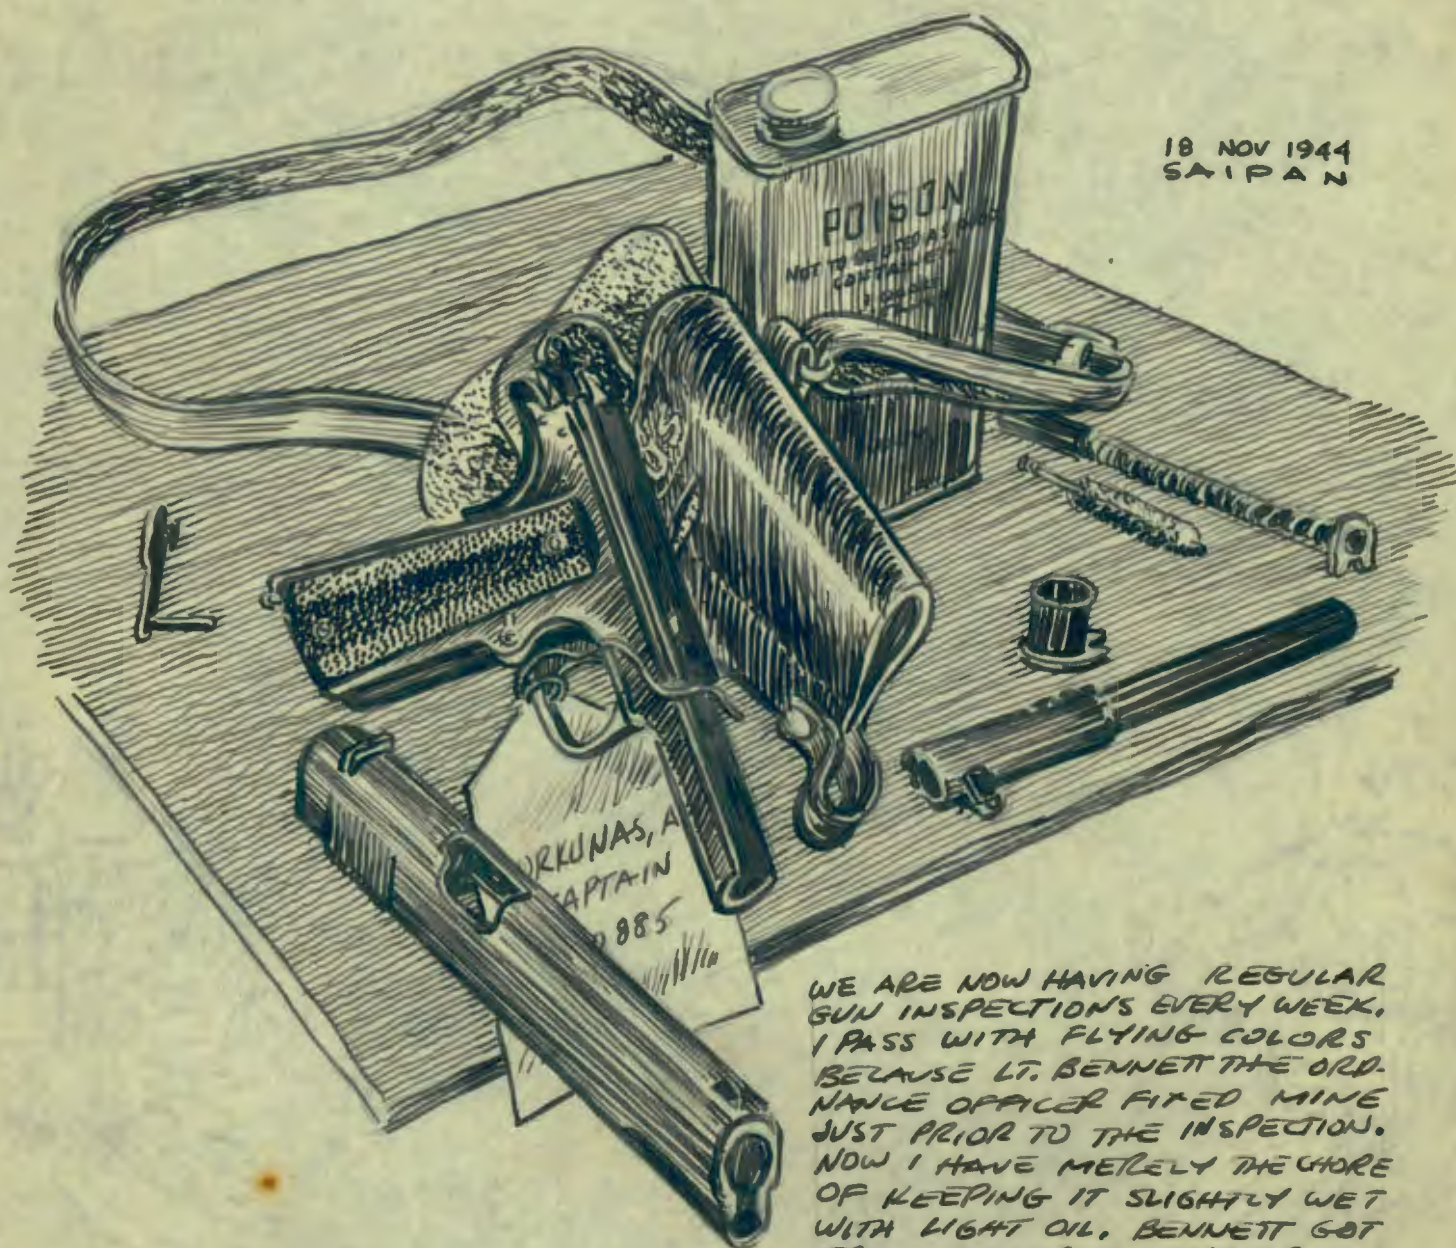 18 NOV 1944
SAIPAN
POISON
NOT TO BE USED AS
CONTAINER
US
ORKUNAS, A
CAPTAIN
885
WE ARE NOW HAVING REGULAR
GUN INSPECTIONS EVERY WEEK.
I PASS WITH FLYING COLORS
BECAUSE LT. BENNETT THE ORD-
NANCE OFFICER FIXED MINE
JUST PRIOR TO THE INSPECTION.
NOW I HAVE MERELY THE CHORE
OF KEEPING IT SLIGHTLY WET
WITH LIGHT OIL. BENNETT GOT